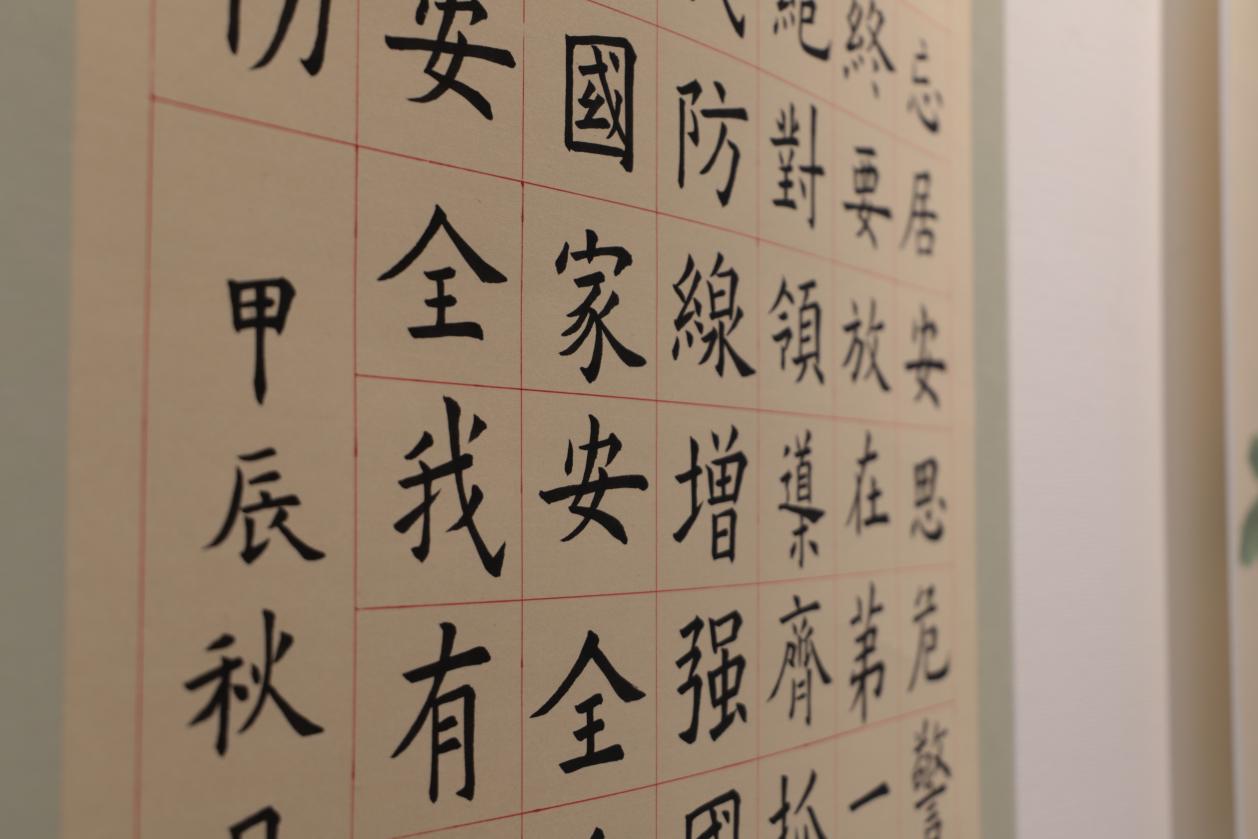 忘居安思危警
終要放在第一
絕對領導齊抓
防線增强國
國家安全
安全我有
甲辰秋